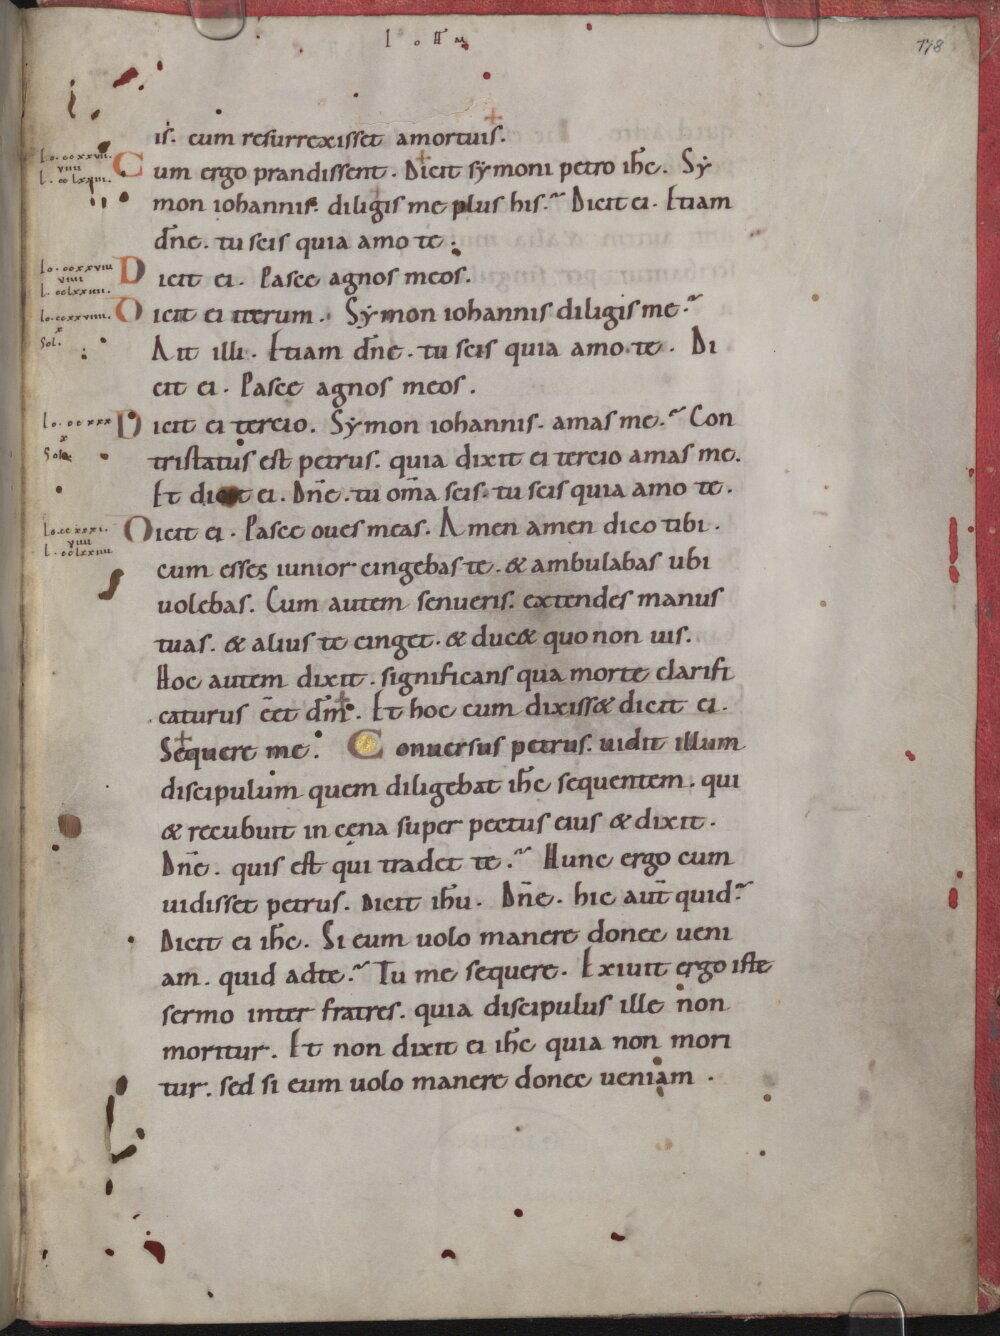 IOHM
178
is. cum resurrexisset amortuis.
Io. ccxxvii.
viiii
L. cclxxiii.
Cum ergo prandissent. Dicit sẏmoni petro ihc̄. Sẏ
mon iohannis. diligis me plus his. Dicit ei. Etiam
dn̄e. tu scis quia amo te.
Io. ccxxviii
viiii
L. cclxxiiii.
Dicit ei. Pasce agnos meos.
Io. ccxxviiii.
x
Sol.
Dicit ei iterum. Sẏmon iohannis diligis me.
Ait illi. Etiam dn̄e. tu scis quia amo te. Di
cit ei. Pasce agnos meos.
Io. ccxxx
x
Sol.
Dicit ei tercio. Sẏmon iohannis. amas me. Con
tristatus est petrus. quia dixit ei tercio amas me.
Et dicit ei. Dn̄e. tu om̄a scis. tu scis quia amo te.
Io. ccxxxi.
viiii
L. cclxxiiii
Dicit ei. Pasce oues meas. Amen amen dico tibi.
cum esses iunior cingebas te. & ambulabas ubi
uolebas. Cum autem senueris. extendes manus
tuas. & alius te cinget. & duc& quo non uis.
Hoc autem dixit. significans qua morte clarifi
caturus eēt dm̄. Et hoc cum dixiss& dicit ei.
Sequere me. Conuersus petrus. uidit illum
discipulum quem diligebat ihc̄ sequentem. qui
& recubuit in cena super pectus eius & dixit.
Dn̄e. quis est qui tradet te. Hunc ergo cum
uidisset petrus. dicit ihū. Dn̄e. hic aut̄ quid
Dicit ei ihc̄. Si eum uolo manere donec ueni
am. quid adte. Tu me sequere. Exiuit ergo iste
sermo inter fratres. quia discipulus ille non
moritur. Et non dixit ei ihc̄ quia non mori
tur. sed si eum uolo manere donec ueniam.